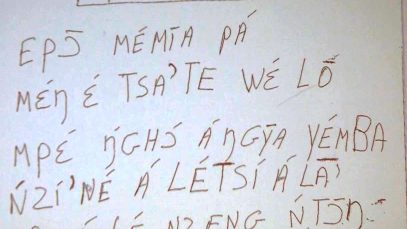 EPƆ̄ MÉMĪA PÁ
MÉŊ É TSA'TE WÉ LŌ
MPÉ ŊGHƆ́ Á ŊGȲA YÉMBA
ŃZÍ'NÉ Á LÉTSÍ Á LĀ'
NZENG ŃTƆŊ